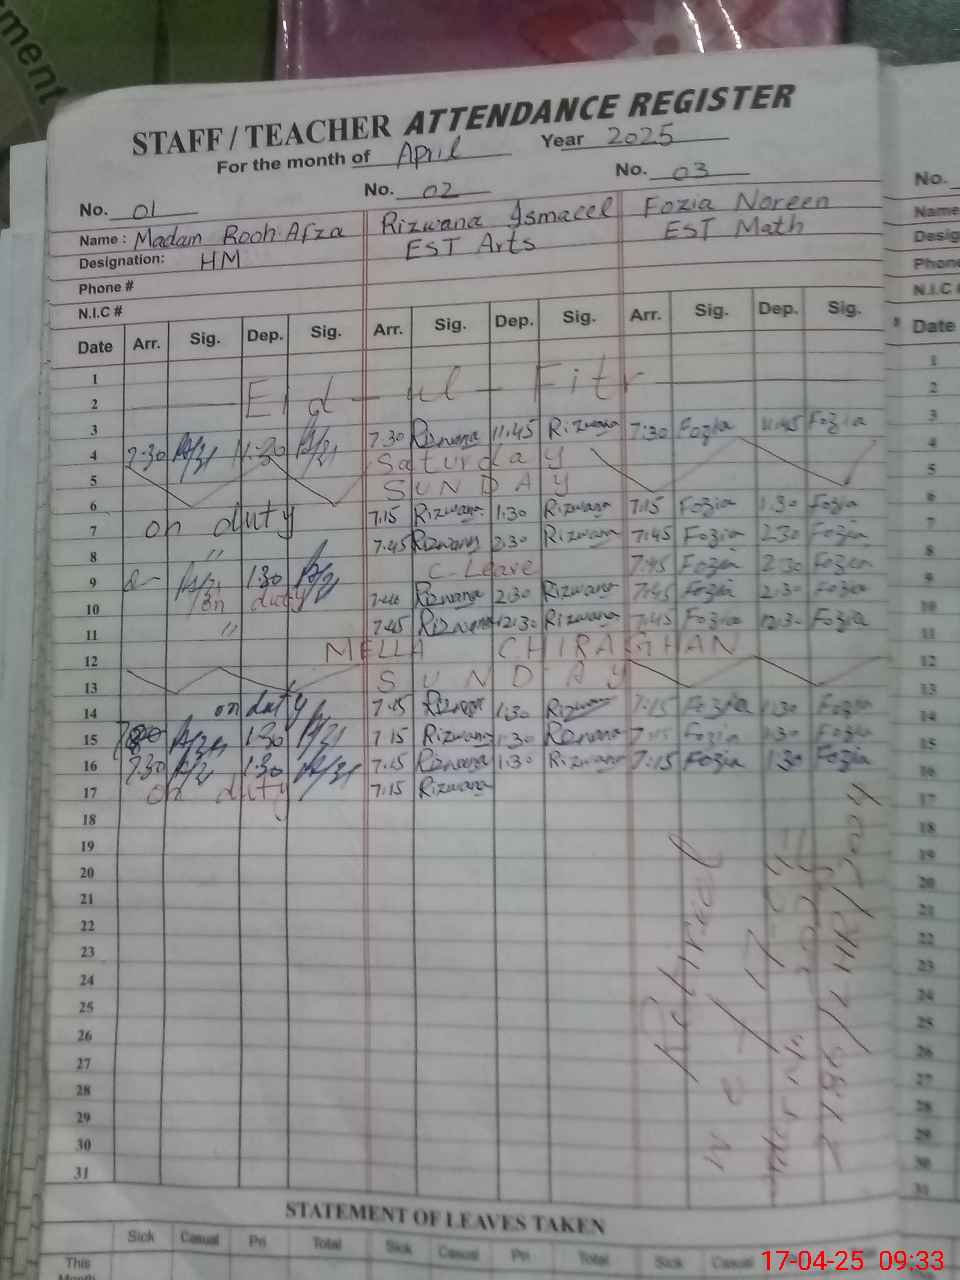 ment
STAFF / TEACHER ATTENDANCE REGISTER
For the month of April Year 2025
No. 01 No. 02 No. 03 No.
Name : Madam Rooh Afza Rizwana Ismaeel Fozia Noreen Name
Designation: HM EST Arts EST Math Desig
Phone # Phone
N.I.C # N.I.C
Date Arr. Sig. Dep. Sig. Arr. Sig. Dep. Sig. Arr. Sig. Dep. Sig. Date
1 1
2 Eid - ul - Fitr 2
3 7.30 Rizwana 11.45 Rizwana 7:30 Fozia 11.45 Fozia 3
4 7.30 11.30 Saturday 4
5 SUNDAY 5
6 on duty 7.15 Rizwana 1.30 Rizwana 7.15 Fozia 1.30 Fozia 6
7 7.45 Rizwana 2.30 Rizwana 7.45 Fozia 2.30 Fozia 7
8 " C-Leave 7.45 Fozia 2.30 Fozia 8
9 1.30 Rizwana 2.30 Rizwana 7.45 Fozia 2.30 Fozia 9
10 on duty 7.45 Rizwana 12.30 Rizwana 7.45 Fozia 12.30 Fozia 10
11 " MELLA CHIRAGHAN 11
12 SUNDAY 12
13 13
14 on duty 7.15 Rizwana 1.30 Rizwana 7.15 Fozia 1.30 Fozia 14
15 1.30 7.15 Rizwana 1.30 Rizwana 7.15 Fozia 1.30 Fozia 15
16 7.30 1.30 7.15 Rizwana 1.30 Rizwana 7.15 Fozia 1.30 Fozia 16
17 on duty 7.15 Rizwana 17
18 18
19 19
20 20
21 21
22 22
23 23
24 24
25 25
26 26
27 27
28 28
29 29
30 30
31 31
Retired
w e f
order No
STATEMENT OF LEAVES TAKEN
Sick Casual Pri Total Sick Casual Pri Total Sick Casual
This
Month
17-04-25 09:33